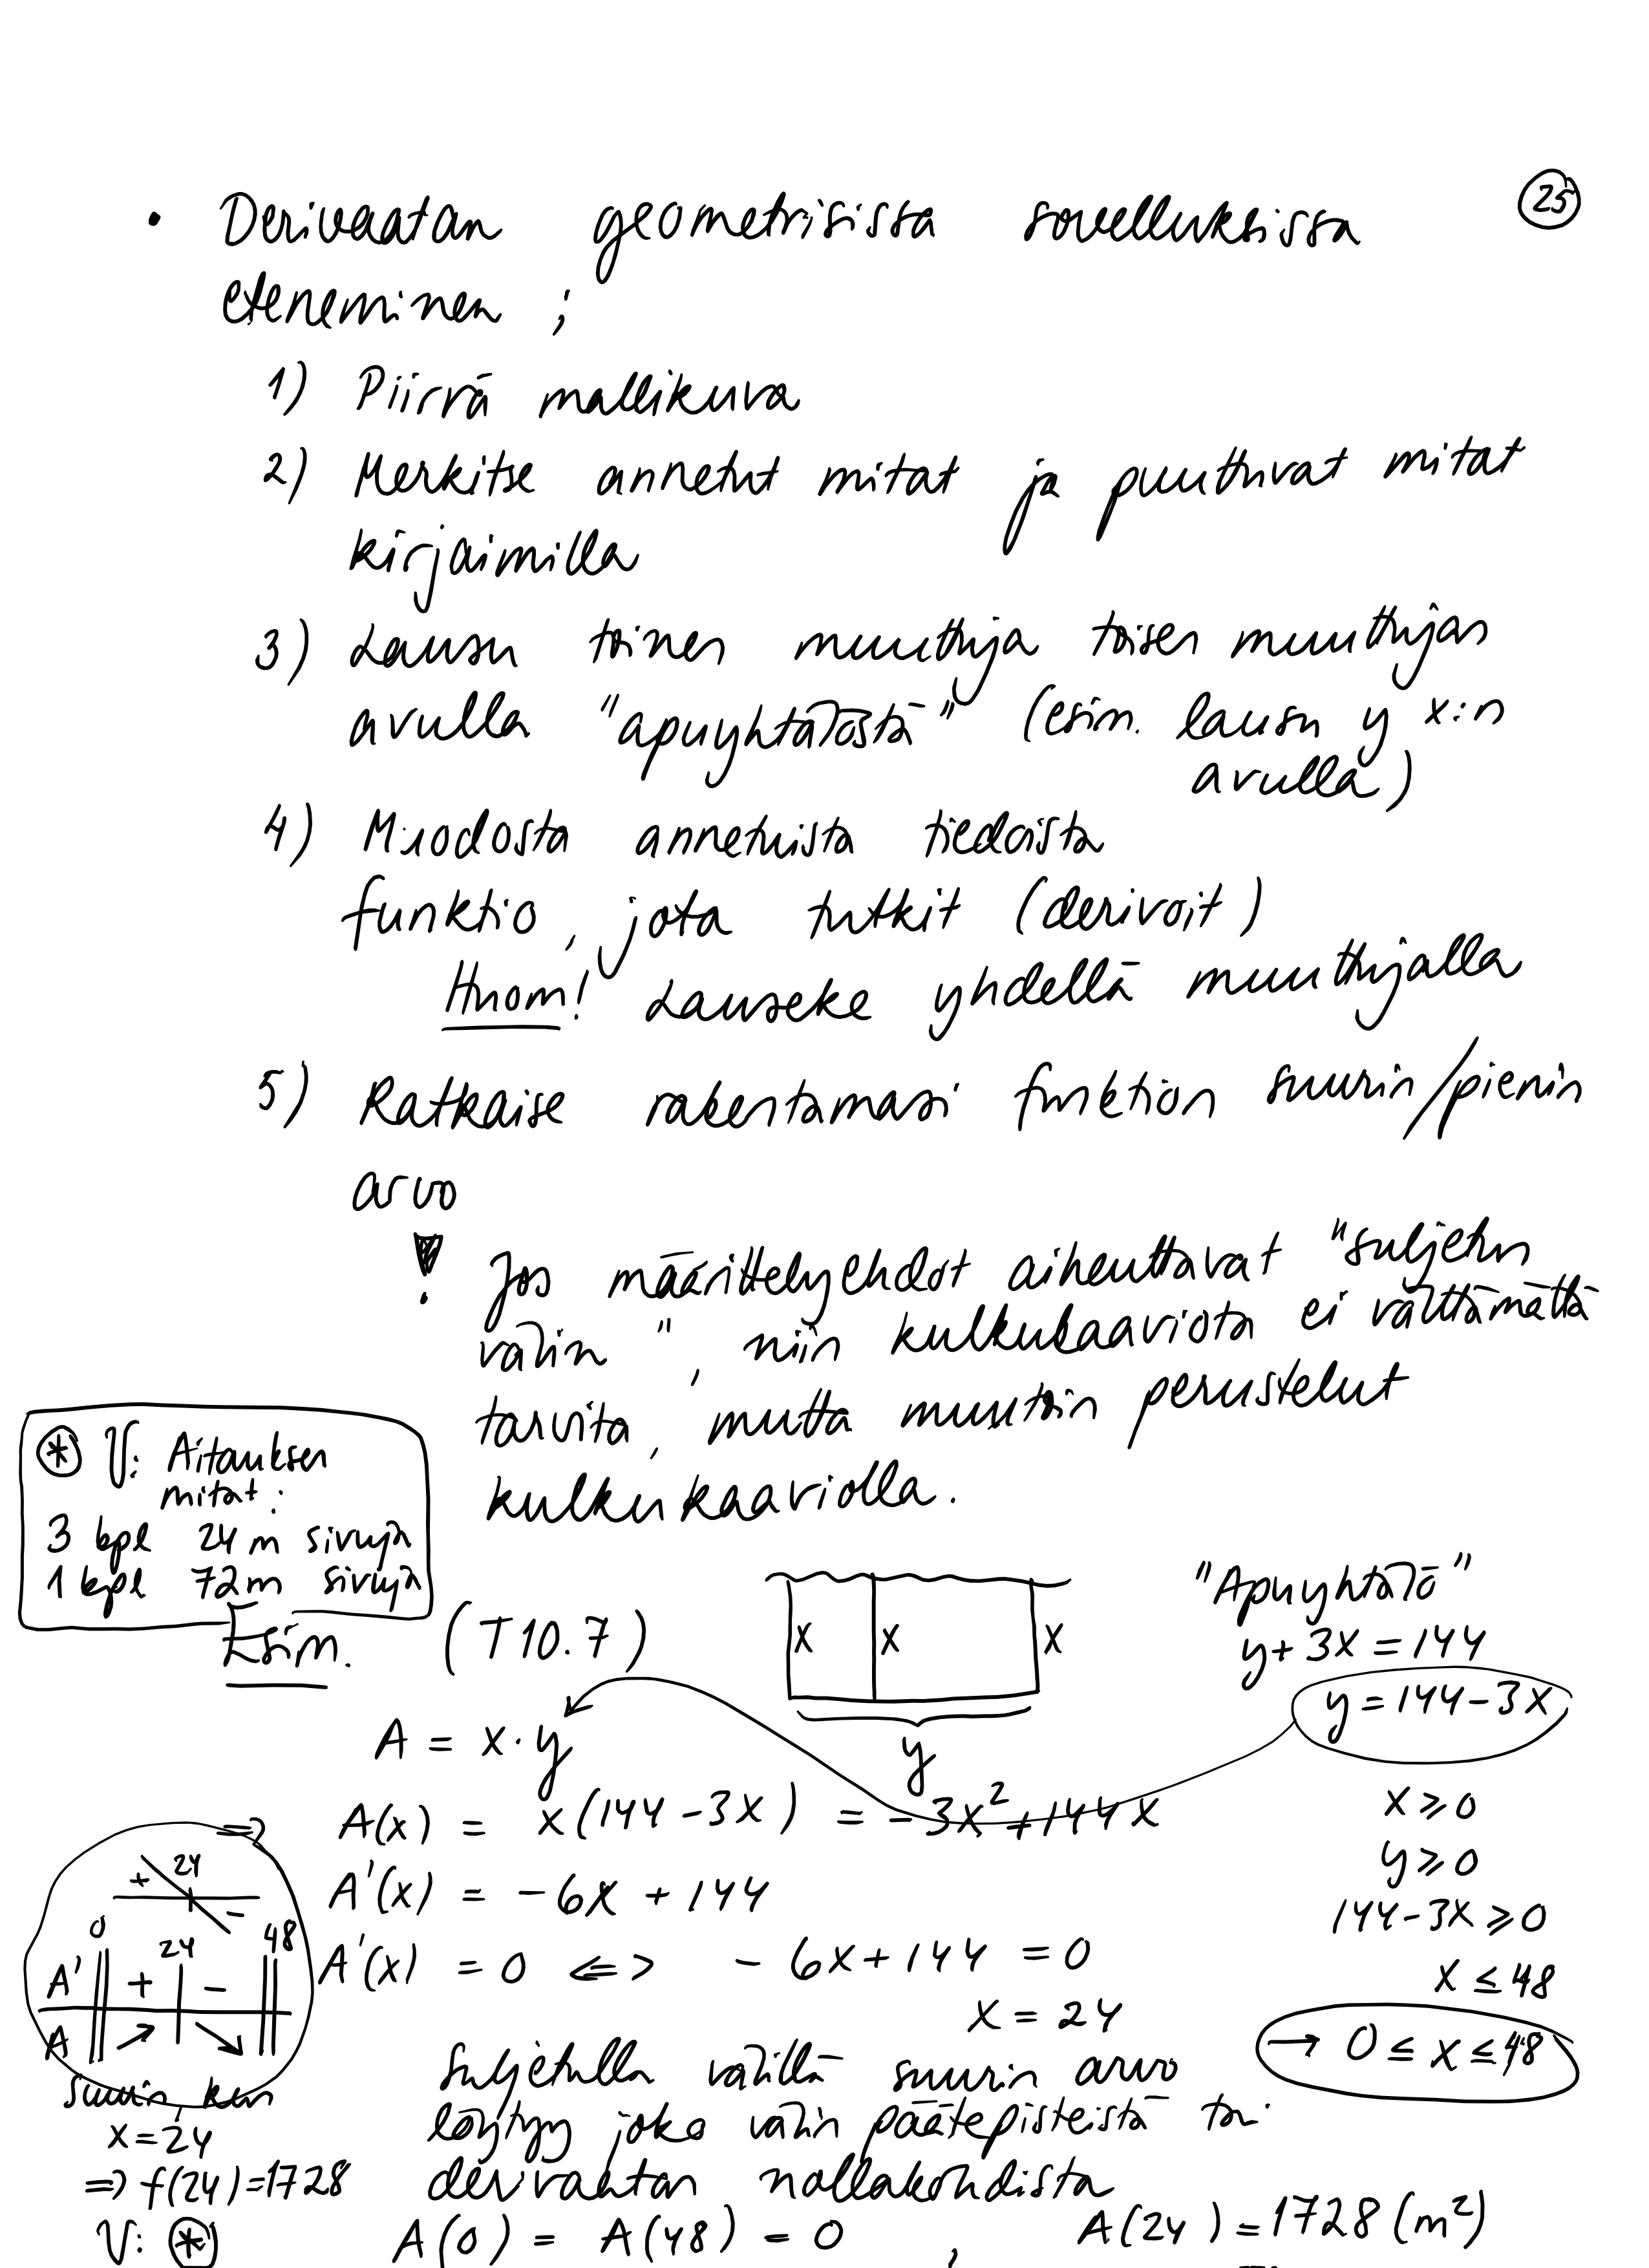 25
• Derivaatan geometrisissa sovelluksissa
eteneminen ;
1) Piirrä mallikuva
2) Merkitse annetut mitat ja puuttuvat mitat
kirjaimilla
3) Lausu toinen muuttuja toisen muuttujan
avulla "apuyhtälöstä" (esim. lausu y x:n
avulla)
4) Muodosta annetuista tiedoista
funktio, jota tutkit (derivoit)
Huom! Lauseke yhdellä muuttujalla
5) Ratkaise rakentamasi funktion suurin/pienin
arvo
! Jos määrittelyehdot aiheuttavat "suljetun
välin", niin kulkukaaviota ei välttämättä
tarvita, mutta muutoin perustelut
kulkukaaviolla.
(*) V: Aitauksen
mitat:
3 kpl 24 m sivuja
1 kpl 72 m sivuja
Esim. (T10.7)
x x x
y
"Apuyhtälö"
y + 3x = 144
y = 144 - 3x
A = x · y
=> A(x) = x(144 - 3x) = -3x² + 144x
A'(x) = -6x + 144
A'(x) = 0 <=> -6x + 144 = 0
x = 24
x ≥ 0
y ≥ 0
144 - 3x ≥ 0
x ≤ 48
→ 0 ≤ x ≤ 48
+ 24 -
0 24 48
A' + -
A ↗ ↘
suurin, kun
x = 24
=> f(24) = 1728
V: (*)
Suljetulla välillä suurin arvo
löytyy joko välin päätepisteistä tai
derivaatan nollakohdista
A(0) = A(48) = 0 , A(24) = 1728 (m²)